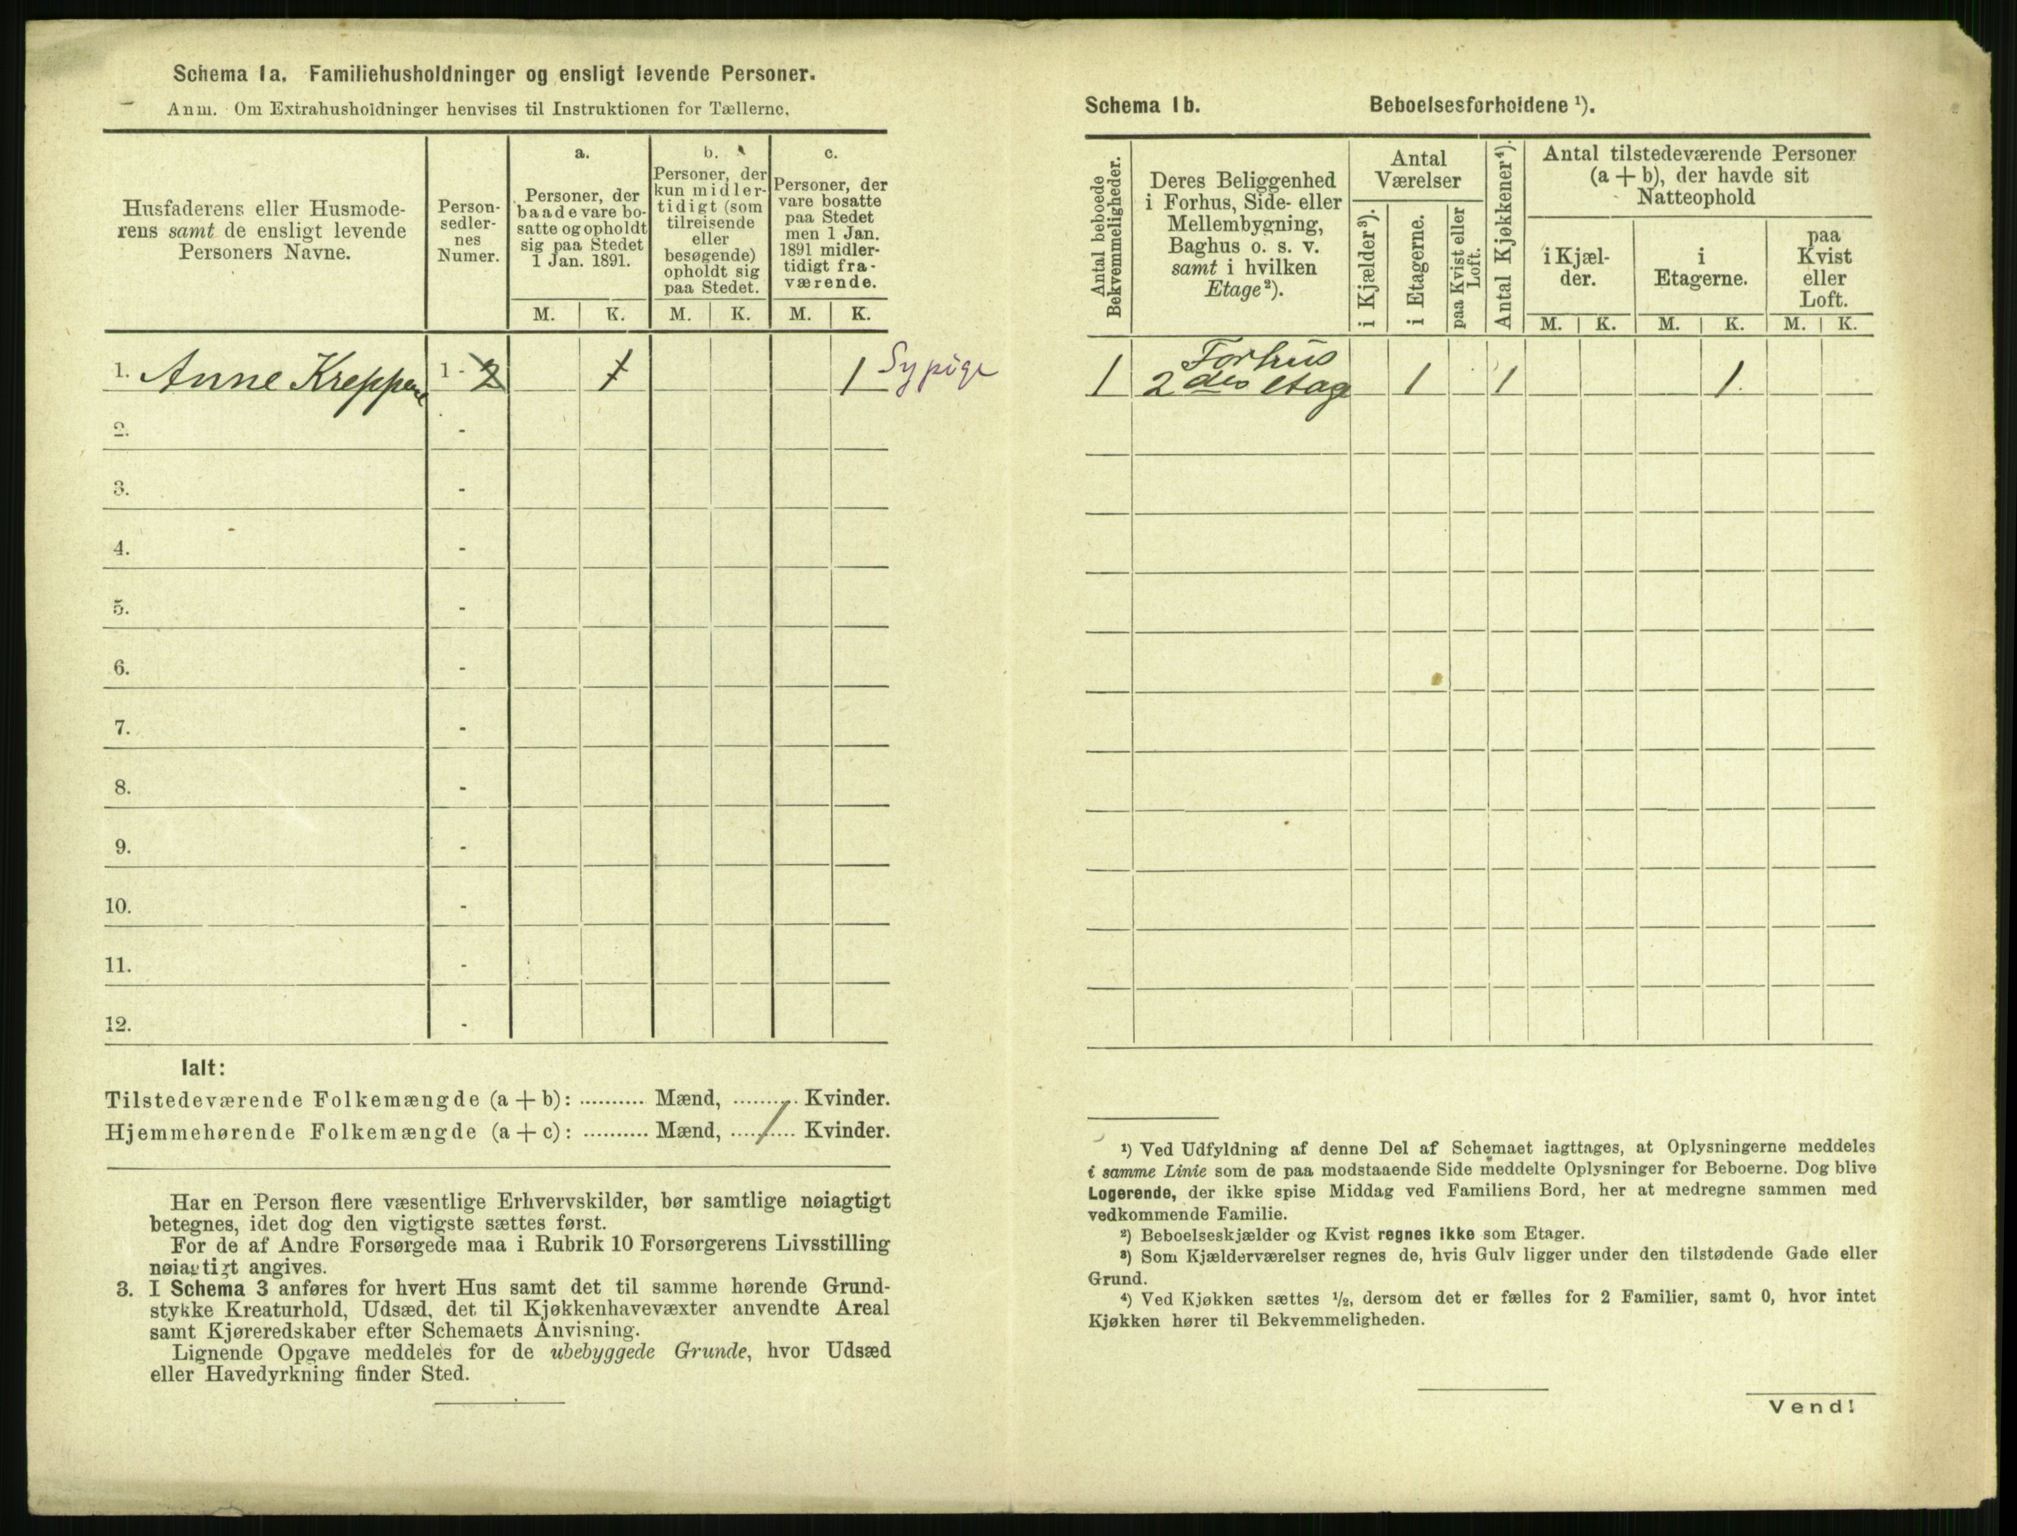 Schema 1a. Familiehusholdninger og ensligt levende Personer.
Anm. Om Extrahusholdninger henvises til Instruktionen for Tællerne.
Husfaderens eller Husmode-
rens samt de ensligt levende
Personers Navne.
Person-
sedler-
nes
Numer.
a.
Personer, der
baade vare bo-
satte og opholdt
sig paa Stedet
1 Jan. 1891.
b.
Personer, der
kun midler-
tidigt (som
tilreisende
eller
besøgende)
opholdt sig
paa Stedet.
c.
Personer, der
vare bosatte
paa Stedet
men 1 Jan.
1891 midler-
tidigt fra-
værende.
M. K. M. K. M. K.
1. Anne Kreppene 1 - 2 1 1 Sypige
2. -
3. -
4. -
5. -
6. -
7. -
8. -
9. -
10. -
11. -
12. -
Ialt:
Tilstedeværende Folkemængde (a + b): .......... Mænd, .......... Kvinder.
Hjemmehørende Folkemængde (a + c): .......... Mænd, ....1.... Kvinder.
Har en Person flere væsentlige Erhvervskilder, bør samtlige nøiagtigt
betegnes, idet dog den vigtigste sættes først.
For de af Andre Forsørgede maa i Rubrik 10 Forsørgerens Livsstilling
nøiagtigt angives.
3. I Schema 3 anføres for hvert Hus samt det til samme hørende Grund-
stykke Kreaturhold, Udsæd, det til Kjøkkenhavevæxter anvendte Areal
samt Kjøreredskaber efter Schemaets Anvisning.
Lignende Opgave meddeles for de ubebyggede Grunde, hvor Udsæd
eller Havedyrkning finder Sted.
Schema 1b. Beboelsesforholdene ¹).
Antal beboede
Bekvemmeligheder.
Deres Beliggenhed
i Forhus, Side- eller
Mellembygning,
Baghus o. s. v.
samt i hvilken
Etage²).
Antal
Værelser
i Kjælder³).
i Etagerne.
paa Kvist eller
Loft.
Antal Kjøkkener⁴).
Antal tilstedeværende Personer
(a + b), der havde sit
Natteophold
i Kjæl-
der.
i
Etagerne.
paa
Kvist
eller
Loft.
M. K. M. K. M. K.
Forhus
1 2 den etage 1 1 1.
¹) Ved Udfyldning af denne Del af Schemaet iagttages, at Oplysningerne meddeles
i samme Linie som de paa modstaaende Side meddelte Oplysninger for Beboerne. Dog blive
Logerende, der ikke spise Middag ved Familiens Bord, her at medregne sammen med
vedkommende Familie.
²) Beboelseskjælder og Kvist regnes ikke som Etager.
³) Som Kjælderværelser regnes de, hvis Gulv ligger under den tilstødende Gade eller
Grund.
⁴) Ved Kjøkken sættes ½, dersom det er fælles for 2 Familier, samt 0, hvor intet
Kjøkken hører til Bekvemmeligheden.
Vend!